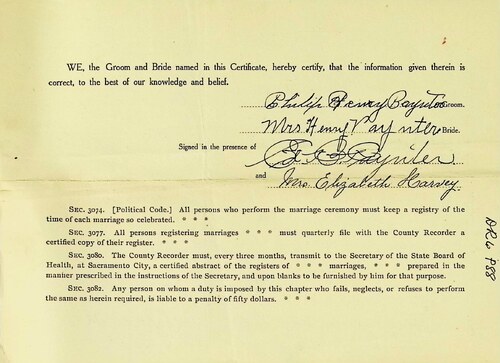 WE, the Groom and Bride named in this Certificate, hereby certify, that the information given therein is
correct, to the best of our knowledge and belief.
Philip Henry Groom.
Mrs Henry Paynter Bride.
Signed in the presence of Paynter
and Mrs. Elizabeth Harvey.
SEC. 3074. [Political Code.] All persons who perform the marriage ceremony must keep a registry of the
time of each marriage so celebrated. * * *
SEC. 3077. All persons registering marriages * * * must quarterly file with the County Recorder
a certified copy of their register. * * *
SEC. 3080. The County Recorder must, every three months, transmit to the Secretary of the State Board of
Health, at Sacramento City, a certified abstract of the registers of * * * marriages, * * * prepared in the
manner prescribed in the instructions of the Secretary, and upon blanks to be furnished by him for that purpose.
SEC. 3082. Any person on whom a duty is imposed by this chapter who fails, neglects, or refuses to perform
the same as herein required, is liable to a penalty of fifty dollars. * * *
P88